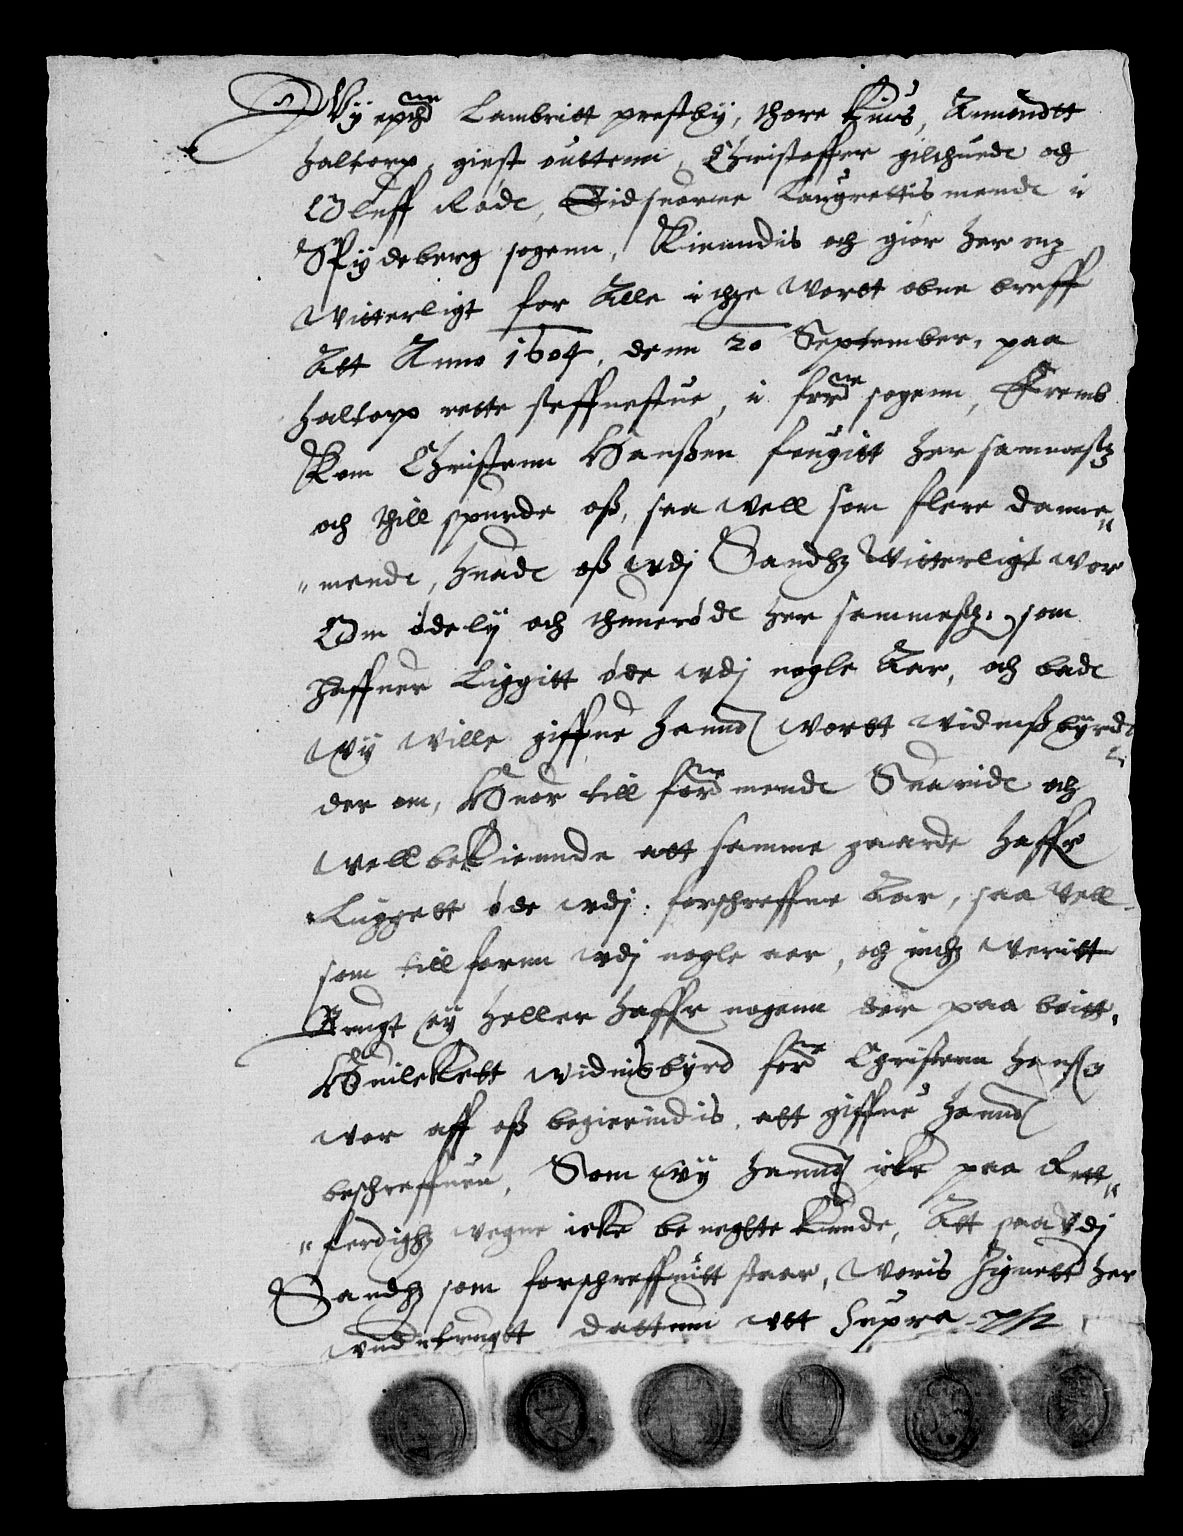 Wÿ epthr̄ne Lambritt prestbÿ, thore Kuus, Amundtt
haltorp, giest outtenn, Christoffer gilchuede och
Oluff Røde, Eidsuorne Laugrettis mende i
Spÿdeberg sogenn, Kiendis och giør her mz
witterligt for Alle i thz wortt obne breff
Att Anno 1604, denn 20 September, paa
haltorp rette steffnestue, i fordne sogenn, Frem
kom Christenn Hanßen fougitt her sammestz
och thill spurde oß, saa well som flere danne„
„mende, huade oß vdj Sandhz witterligt wor
Om ødelÿ och thenerøde her sammestz, som
haffuer Liggitt øde vdj nogle Aar, och bade
wÿ wille giffue hannd wortt widnißbÿrd
der om, Huor till fordne mende Suaride och
well bekiennde att samme gaarde haffr
Lÿggett øde vdj forschreffne Aar, saa vell
som till forn vdj nogle aar, och inthz weritt
Brugt eÿ heller haffr nogenn der paa boitt,
Huilckett widnisbÿrd fordne Christenn Hanssen
wor aff oß begierindis, att giffue hannd
beschreffuen, Som wÿ hannd icke paa Rett„
„ferdighz wegne icke be negtte kunde, Att saa vdj
Sandhz som forschreffuitt staar, woris Zignett her
vnder trugtt dattum vtt supra